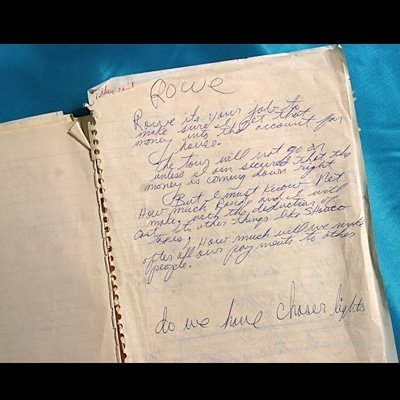 Rowe
Rowe its your job to
make sure I get that
money into the account for
house.
The tour will not go on
unless I am secured that the
money is coming down right
But I must know Net
How much Ring and I will
make, with the deduction of
Cost Its other things like
taxes, How much will we make
after all our payments to other
people.
do we have chaser lights